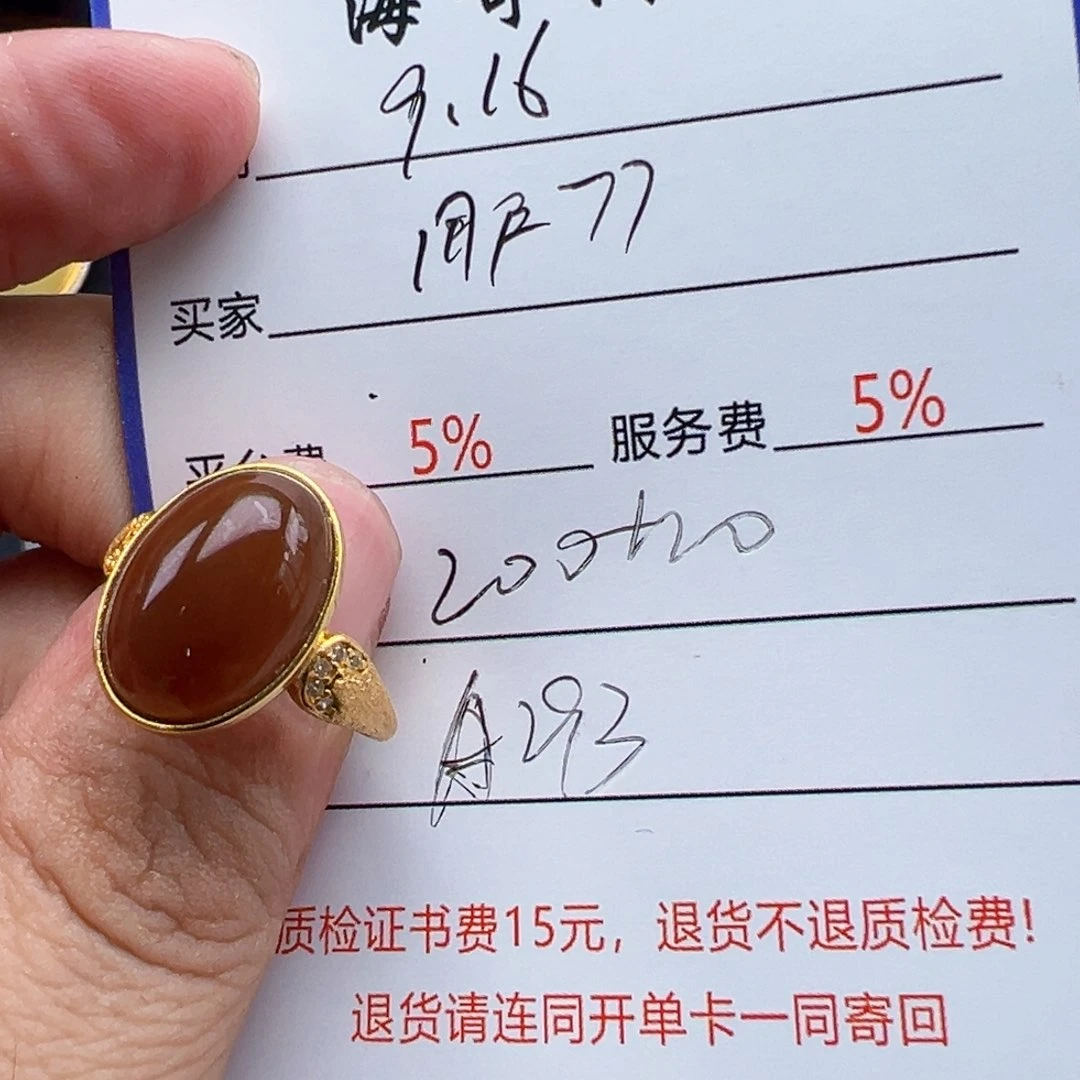 9.16
用户77
买家
平台费 5% 服务费 5%
200+20
A293
质检证书费15元，退货不退质检费!
退货请连同开单卡一同寄回